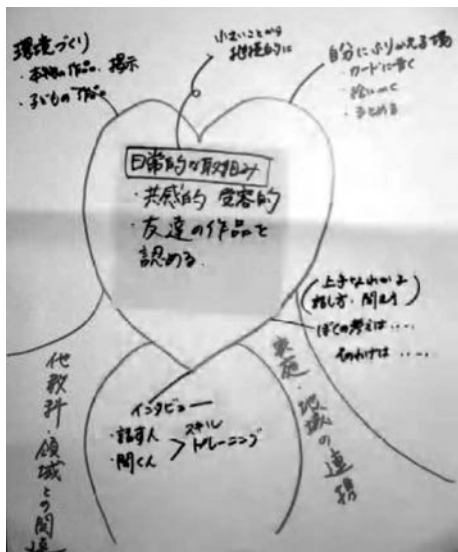 環境づくり
・本物の作品、掲示
・子どもの作品
小さいことから
継続的に
自分にふりかえる場
・カードに書く
・絵にかく
・まとめる
日常的な取組み
・共感的 受容的
・友達の作品を
認める。
話し方・聞き方
ぼくの考えは‥‥
そのわけは‥‥
インタビュー
・話す人
・聞く人
スキル
トレーニング
他教科・領域との関連
家庭・地域の連携